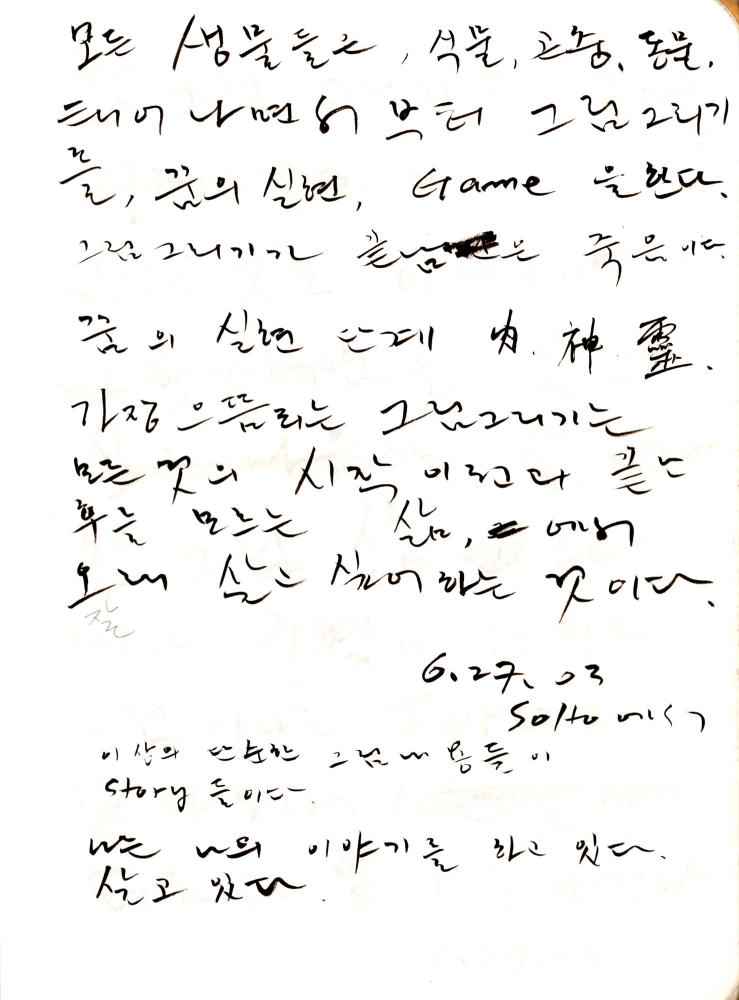 모든 생물들은, 식물, 곤충, 동물,
태어나면서부터 그림그리기
들, 꿈의 실현, Game 을한다.
그림그리기가 끝남은 죽음이다.
꿈의 실현 단계 肉. 神. 靈.
가장 으뜸되는 그림그리기는
모든것의 시작이란다 끝은
후를 모르는 삶, 에서
오래 살고 싶어하는 것이다.
잘
6.27. 03
Soho에서
이상의 단순한 그림내용들이
Story 들이다.
나는 나의 이야기를 하고 있다.
살고 있다.